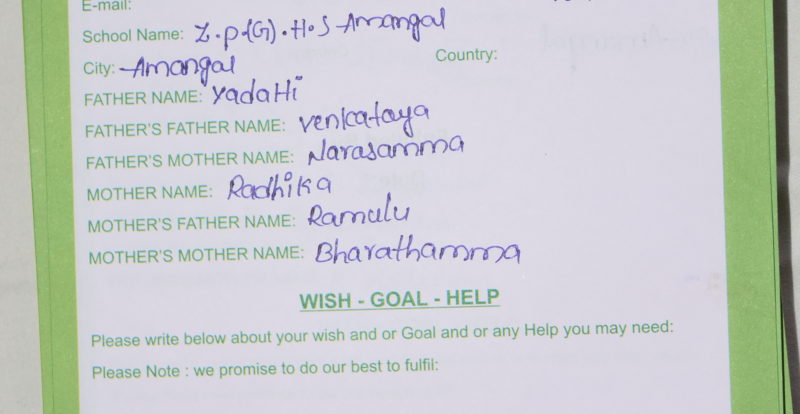 E-mail:
School Name: Z.P.(G).H.S Amangal
City: Amangal Country:
FATHER NAME: Yadatti
FATHER'S FATHER NAME: Venkataya
FATHER'S MOTHER NAME: Narasamma
MOTHER NAME: Radhika
MOTHER'S FATHER NAME: Ramulu
MOTHER'S MOTHER NAME: Bharathamma
WISH - GOAL - HELP
Please write below about your wish and or Goal and or any Help you may need:
Please Note : we promise to do our best to fulfil: